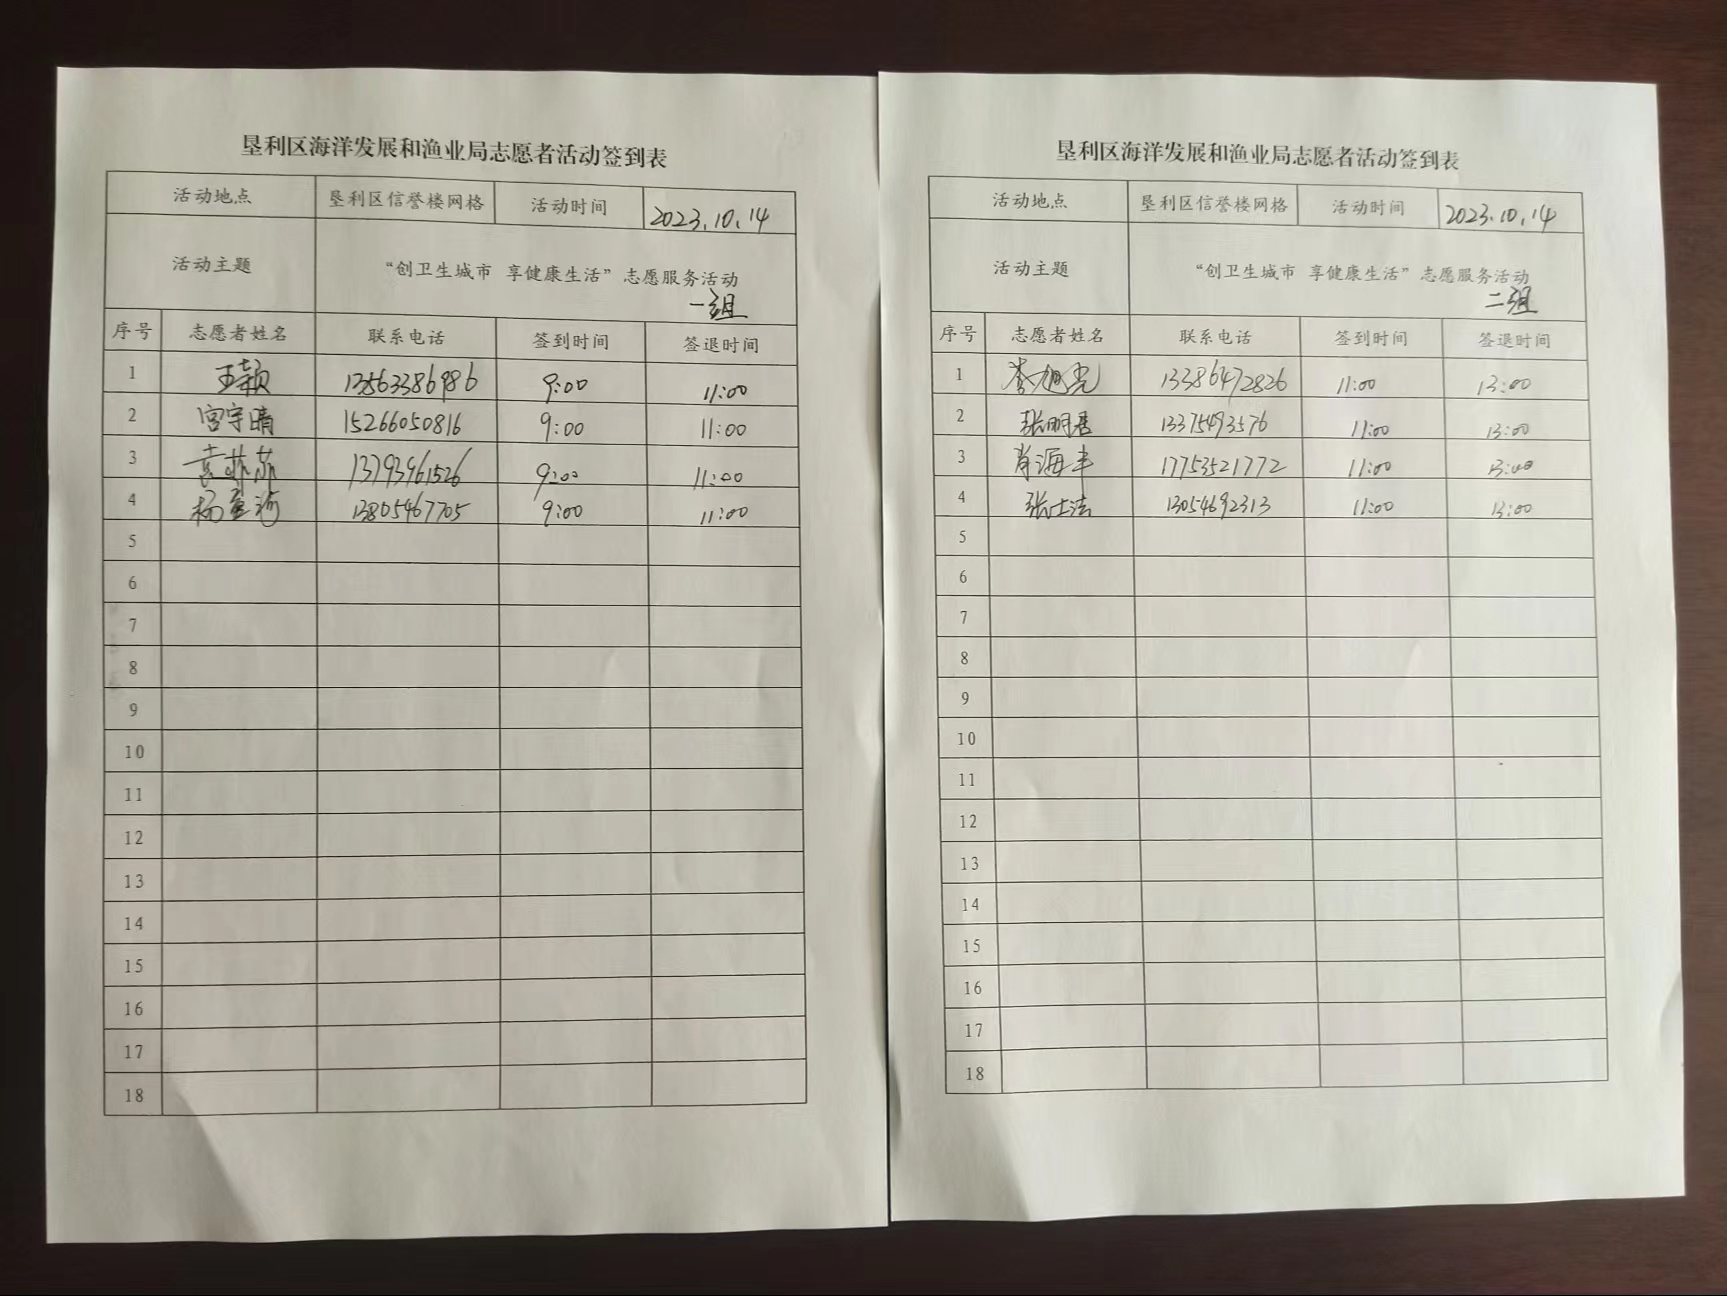 垦利区海洋发展和渔业局志愿者活动签到表
活动地点 垦利区信誉楼网格 活动时间 2023.10.14
活动主题 “创卫生城市 享健康生活”志愿服务活动
一组
序号 志愿者姓名 联系电话 签到时间 签退时间
1 王颖 13563386986 9:00 11:00
2 宫宇晴 15266050816 9:00 11:00
3 袁菲菲 13793961526 9:00 11:00
4 杨 13805467705 9:00 11:00
5
6
7
8
9
10
11
12
13
14
15
16
17
18
垦利区海洋发展和渔业局志愿者活动签到表
活动地点 垦利区信誉楼网格 活动时间 2023.10.14
活动主题 “创卫生城市 享健康生活”志愿服务活动
二组
序号 志愿者姓名 联系电话 签到时间 签退时间
1 李旭光 13386472826 11:00 13:00
2 张明 13375493576 11:00 13:00
3 肖海丰 17753521772 11:00 13:00
4 张士法 13054692313 11:00 13:00
5
6
7
8
9
10
11
12
13
14
15
16
17
18